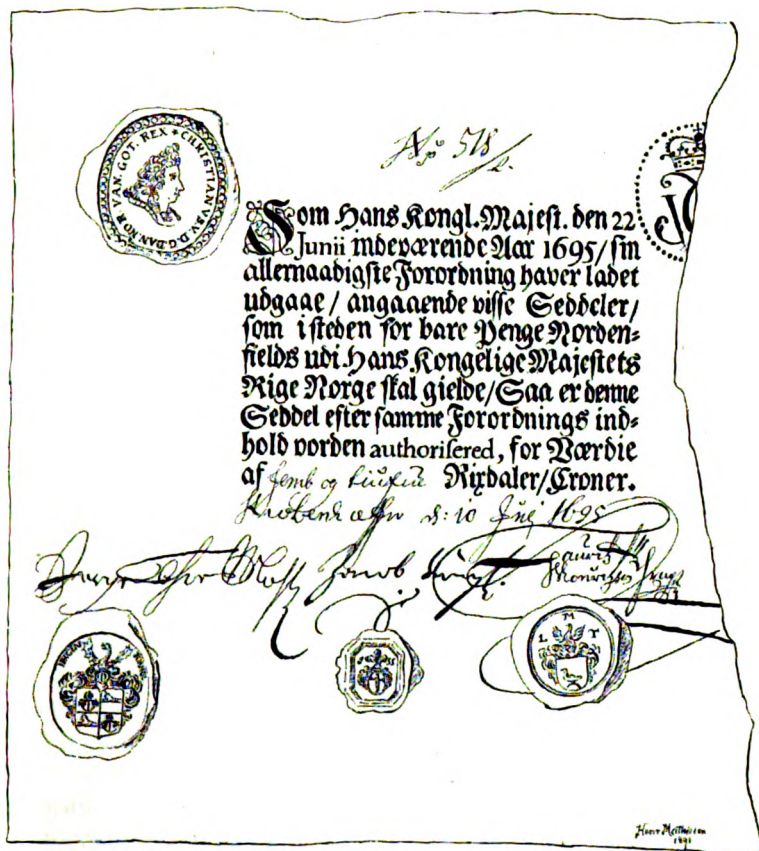 CHRISTIAN V. V. D. G. DAN. NOR. VAN. GOT. REX
No 518/2.
Som Hans Kongl. Majest. den 22
Junii indeværende Aar 1695/ sin
allernaadigste Forordning haver ladet
udgaae/ angaaende visse Seddeler/
som i steden for bare Penge Norden-
fields udi Hans Kongelige Majestets
Rige Norge skal gielde/ Saa er denne
Seddel efter samme Forordnings ind-
hold vorden authorisered, for Værdie
af femb og tiufue Rixdaler/Croner.
d: 10 Julj 1695
Jacob
Lauritz
L M T
1891